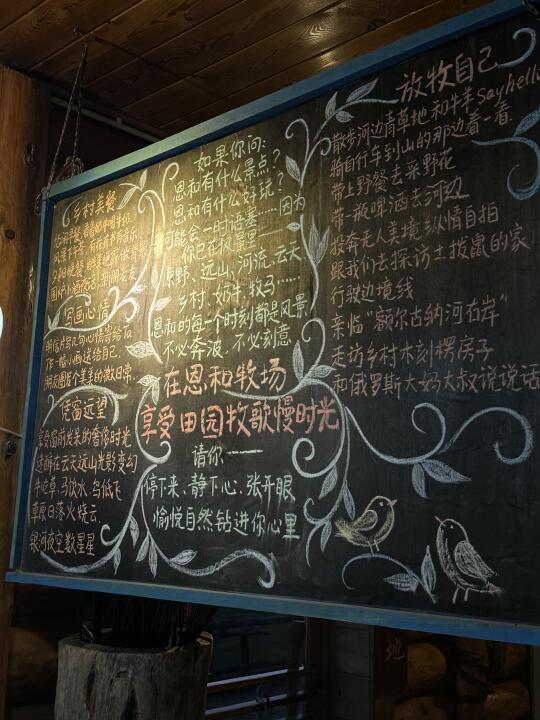 乡村美餐
写画心情
作一幅小画送给自己
凭窗远望
享受窗前发呆的奢侈时光
迷醉在云天远山光影变幻
牛吃草、马饮水、鸟低飞
草原日落火烧云
银河夜空数星星
如果你问：
恩和有什么景点？
恩和有什么好玩？
可能会一时语塞……因为
你已在风景里——
原野、远山、河流、云天、
乡村、奶牛、牧马……
恩和的每一个时刻都是风景
不必奔波，不必刻意
在恩和牧场
享受田园牧歌慢时光
请你——
停下来、静下心、张开眼
愉悦自然钻进你心里
放牧自己
散步河边青草地和牛羊say hello
骑自行车到山的那边看一看.
带上野餐去采野花
带一瓶啤酒去河边
投奔无人美境纵情自拍
跟我们去探访土拨鼠的家
行驶边境线
亲临“额尔古纳河右岸”
走坊乡村木刻楞房子
和俄罗斯大妈大叔说说话
地